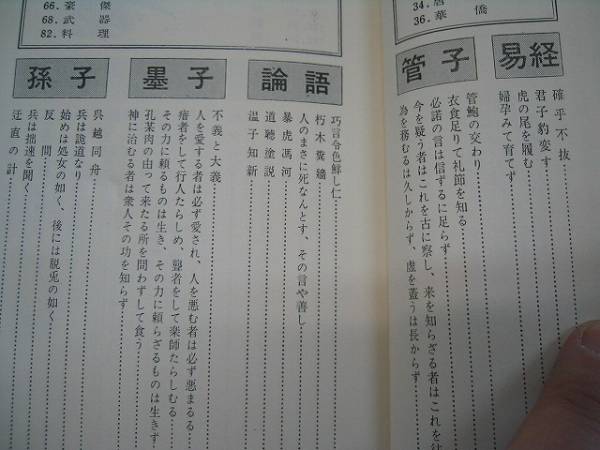 34.唐
36.華 僑
66.豪 傑
68.武 器
82.料 理
易経
確乎不抜
君子豹変す
虎の尾を履む
婦孕みて育てず
管子
管鮑の交わり
衣食足りて礼節を知る
必諾の言は信ずるに足らず
今を疑う者はこれを古に察し、来を知らざる者はこれを往
為を務むるは久しからず、虚を蓋うは長からず
論語
巧言令色鮮し仁
朽木糞牆
人のまさに死なんとす、その言や善し
暴虎馮河
道聴塗説
温子知新
墨子
不義と大義
人を愛する者は必ず愛され、人を悪む者は必ず悪まるる
瘖者をして行人たらしめ、聾者をして楽師たらしむる
その力に頼るものは生き、その力に頼らざるものは生きず
孔某肉の由って来たる所を問わずして食う
神に治むる者は衆人その功を知らず
孫子
呉越同舟
兵は詭道なり
始めは処女の如く、後には脱兎の如く
反間
兵は拙速を聞く
迂直の計